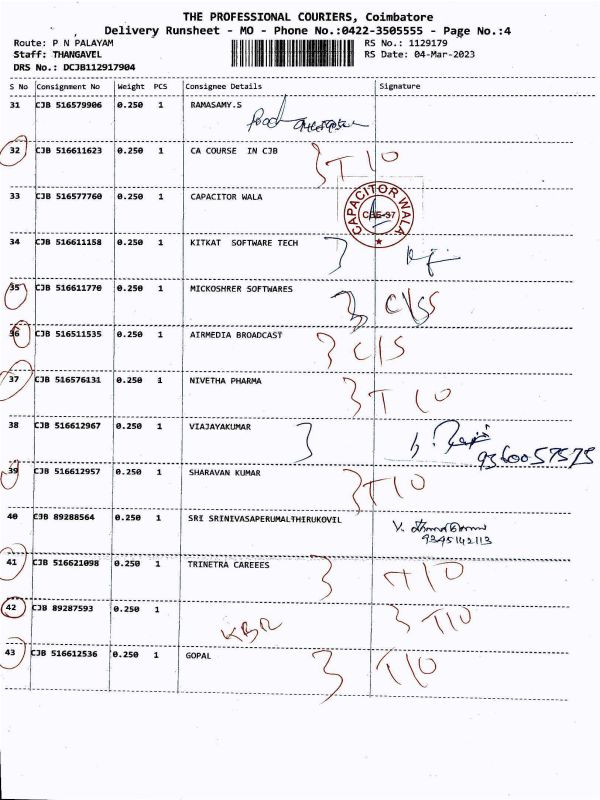 THE PROFESSIONAL COURIERS, Coimbatore
Delivery Runsheet - MO - Phone No.:0422-3505555 - Page No.:4
Route: P N PALAYAM RS No.: 1129179
Staff: THANGAVEL RS Date: 04-Mar-2023
DRS No.: DCJB112917904
S No Consignment No Weight PCS Consignee Details Signature
31 CJB 516579906 0.250 1 RAMASAMY.S
32 CJB 516611623 0.250 1 CA COURSE IN CJB } T I O
33 CJB 516577760 0.250 1 CAPACITOR WALA
CAPACITOR WALA
CBE-37
34 CJB 516611158 0.250 1 KITKAT SOFTWARE TECH }
35 CJB 516611770 0.250 1 MICKOSHRER SOFTWARES }
36 CJB 516511535 0.250 1 AIRMEDIA BROADCAST } C/S
37 CJB 516576131 0.250 1 NIVETHA PHARMA } T I O
38 CJB 516612967 0.250 1 VIAJAYAKUMAR }
9360057575
39 CJB 516612957 0.250 1 SHARAVAN KUMAR } T I O
40 CJB 89288564 0.250 1 SRI SRINIVASAPERUMALTHIRUKOVIL
9345142113
41 CJB 516621098 0.250 1 TRINETRA CAREEES } T I O
42 CJB 89287593 0.250 1 } T I O
KBR
43 CJB 516612536 0.250 1 GOPAL } T I O